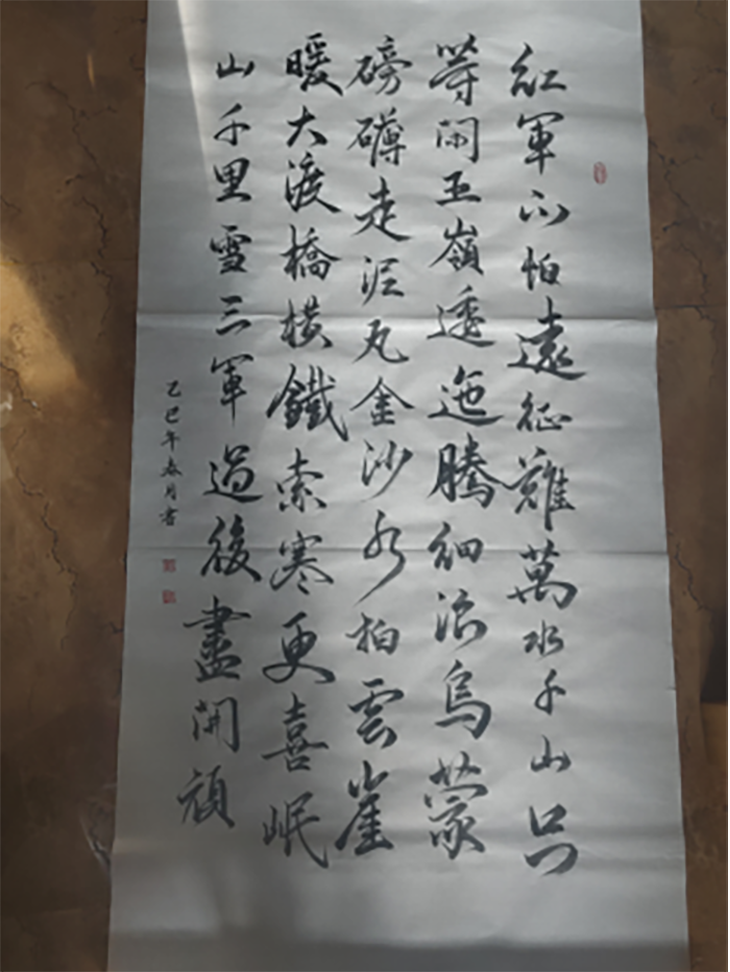 紅軍不怕遠征難萬水千山只
等閑五嶺逶迤騰細浪烏蒙
磅礴走泥丸金沙水拍雲崖
暖大渡橋橫鐵索寒更喜岷
山千里雪三軍過後盡開顏
乙巳年春月書